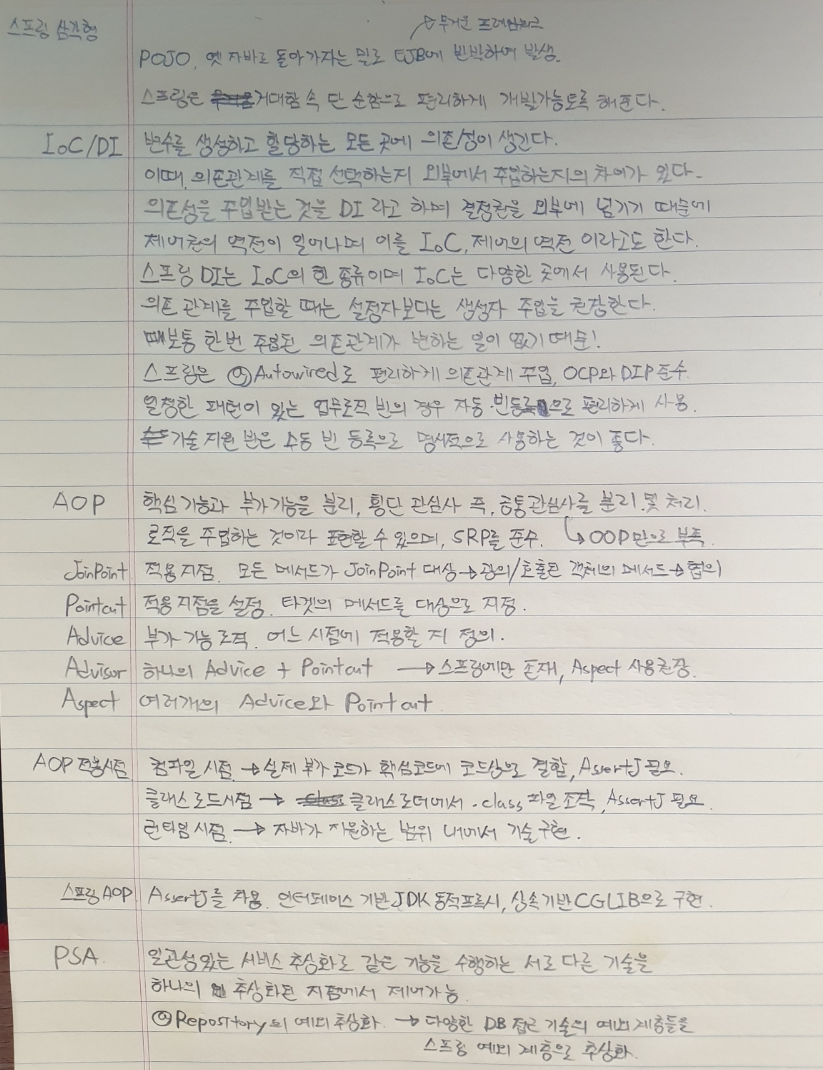 스프링 삼각형
→ 무거운 프레임워크
POJO, 옛 자바로 돌아가자는 말로 EJB에 반박하여 발생.
스프링은 거대함 속 단순함으로 편리하게 개발가능토록 해준다.
IoC/DI 변수를 생성하고 할당하는 모든 곳에 의존성이 생긴다.
이때, 의존관계를 직접 선택하는지 외부에서 주입하는지의 차이가 있다.
의존성을 주입받는 것을 DI 라고 하며 결정권을 외부에 넘기기 때문에
제어권의 역전이 일어나며 이를 IoC, 제어의 역전 이라고도 한다.
스프링 DI는 IoC의 한 종류이며 IoC는 다양한 곳에서 사용된다.
의존 관계를 주입할 때는 설정자보다는 생성자 주입을 권장한다.
보통 한번 주입된 의존관계가 변하는 일이 없기 때문!
스프링은 @Autowired로 편리하게 의존관계 주입, OCP와 DIP 준수.
일정한 패턴이 있는 업무로직 빈의 경우 자동 빈등록으로 편리하게 사용.
기술 지원 빈은 수동 빈 등록으로 명시적으로 사용하는 것이 좋다.
AOP 핵심 기능과 부가기능을 분리, 횡단 관심사 즉, 공통관심사를 분리 및 처리.
로직을 주입하는 것이라 표현할 수 있으며, SRP를 준수. ↳ OOP만으로 부족.
JoinPoint 적용지점. 모든 메서드가 JoinPoint 대상 → 광의/호출된 객체의 메서드 → 협의
Pointcut 적용지점을 설정. 타겟의 메서드를 대상으로 지정.
Advice 부가 기능 로직. 어느 시점에 적용할 지 정의.
Advisor 하나의 Advice + Pointcut → 스프링에만 존재, Aspect 사용권장.
Aspect 여러개의 Advice와 Pointcut
AOP 적용시점 컴파일 시점 → 실제 부가코드가 핵심코드에 코드상으로 결합, AssertJ 필요.
클래스로드시점 → 클래스로더에서 .class 파일 조작, AssertJ 필요.
런타임 시점 → 자바가 지원하는 범위 내에서 기술구현.
스프링 AOP AssertJ를 차용. 인터페이스 기반 JDK 동적프록시, 상속기반 CGLIB으로 구현.
PSA 일관성있는 서비스 추상화로 같은 기능을 수행하는 서로 다른 기술을
하나의 추상화된 지점에서 제어가능.
@Repository의 예외 추상화. → 다양한 DB 접근 기술의 예외 계층들을
스프링 예외 계층으로 추상화.